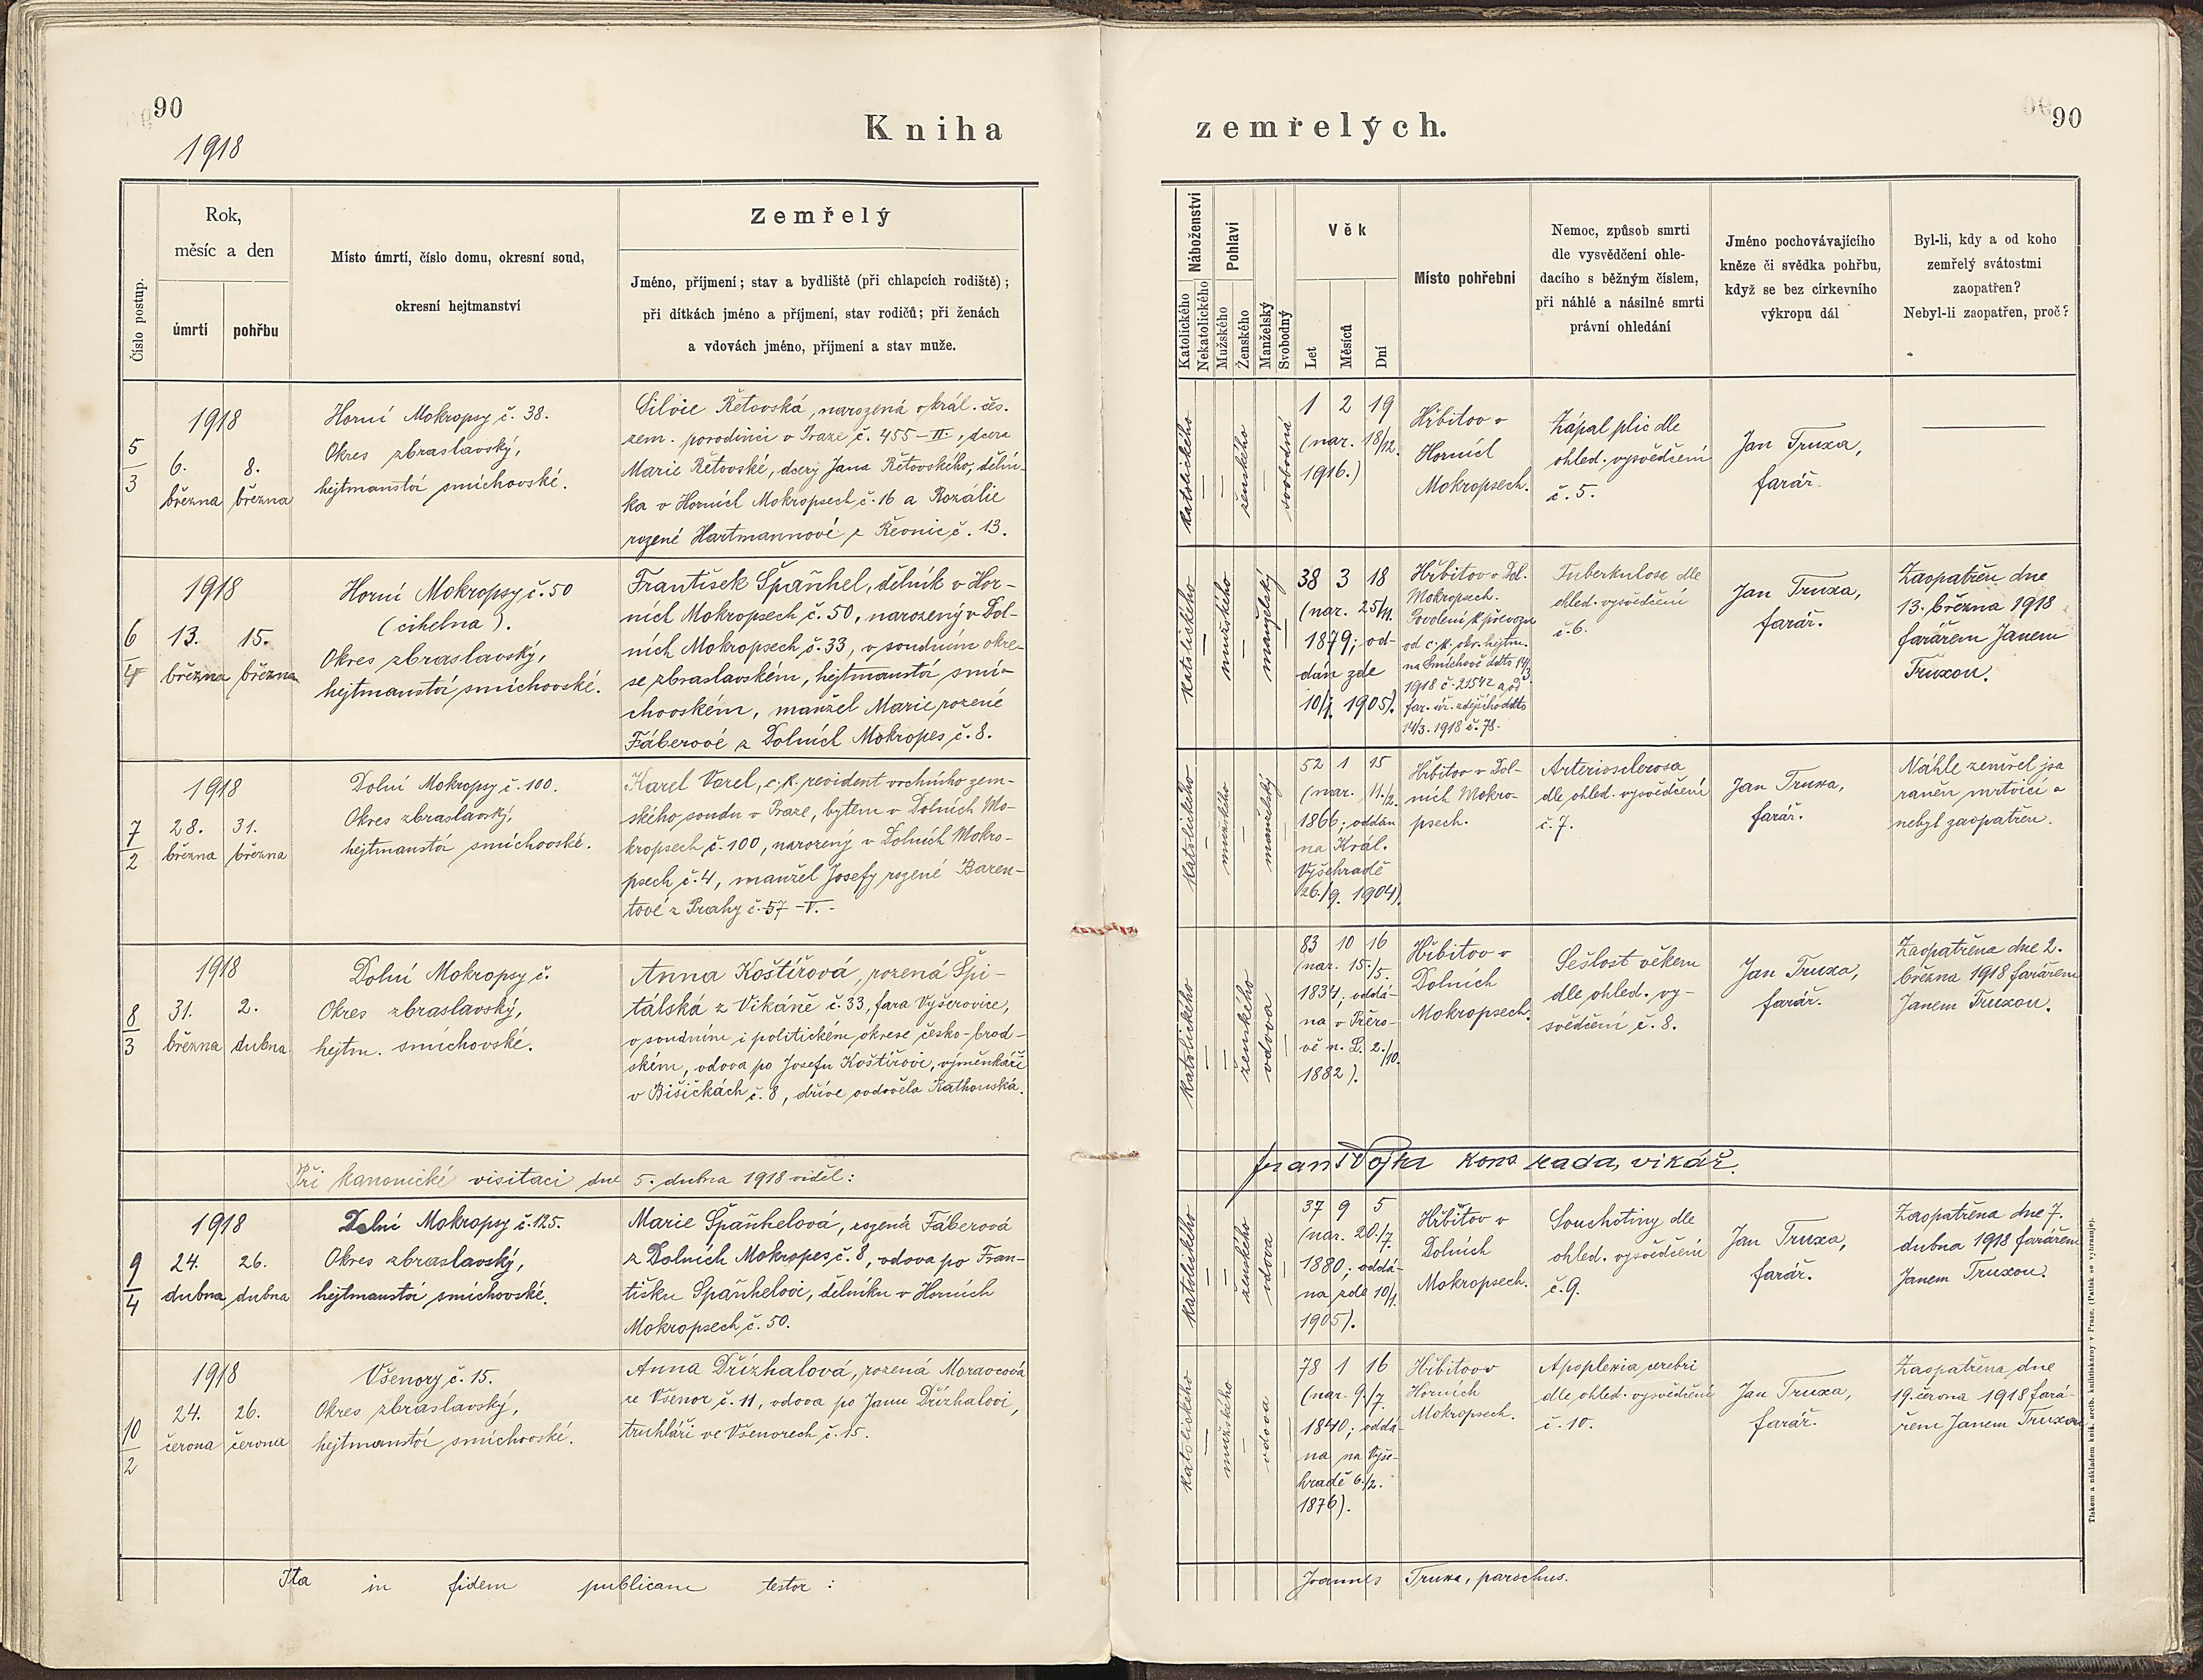 90
1918
Kniha
Číslo postup.
Rok,
měsíc a den
úmrtí
pohřbu
Místo úmrtí, číslo domu, okresní soud,
okresní hejtmanství
Zemřelý
Jméno, příjmení; stav a bydliště (při chlapcích rodiště);
při dítkách jméno a příjmení, stav rodičů; při ženách
a vdovách jméno, příjmení a stav muže.
5
3
1918
6.
března
8.
března
Horní Mokropsy č. 38.
Okres zbraslavský,
hejtmanství smíchovské.
Silvie Řetovská, narozená v král. čes.
zem. porodinci v Praze č. 455-II., dcera
Marie Řetovské, dcery Jana Řetovského, dělní-
ka v Horních Mokropsech č. 16 a Rozálie
rozené Hartmannové z Řevnic č. 13.
6
4
1918
13.
března
15.
března
Horní Mokropsy č. 50
(cihelna).
Okres zbraslavský,
hejtmanství smíchovské.
František Špaňhel, dělník v Hor-
ních Mokropsech č. 50, narozený v Dol-
ních Mokropsech č. 33, v soudním okre-
se zbraslavském, hejtmanství smí-
chovském, manžel Marie rozené
Fáberové z Dolních Mokropes č. 8.
7
2
1918
28.
března
31.
března
Dolní Mokropsy č. 100.
Okres zbraslavský,
hejtmanství smíchovské.
Karel Vorel, c. k. revident vrchního zem-
ského soudu v Praze, bytem v Dolních Mo-
kropsech č. 100, narozený v Dolních Mokro-
psech č. 4, manžel Josefy rozené Baren-
tové z Prahy č. 57-V.-
8
3
1918
31.
března
2.
dubna
Dolní Mokropsy č.
Okres zbraslavský,
hejtm. smíchovské.
Anna Koštířová, rozená Špi-
tálská z Vikáně č. 33, fara Vyšerovice,
v soudním i politickém okrese česko-brod-
ském, vdova po Josefu Koštířovi, výměnkáři
v Bišičkách č. 8, dříve ovdověla Rathouská.
Při kanonické visitaci dne 5. dubna 1918 viděl:
9
4
1918
24.
dubna
26.
dubna
Dolní Mokropsy č. 125.
Okres zbraslavský,
hejtmanství smíchovské.
Marie Špaňhelová, rozená Fáberová
z Dolních Mokropes č. 8, vdova po Fran-
tišku Špaňhelovi, dělníku v Horních
Mokropsech č. 50.
10
2
1918
24.
června
26.
června
Všenory č. 15.
Okres zbraslavský,
hejtmanství smíchovské.
Anna Dřízhalová, rozená Moravcová
ze Všenor č. 11, vdova po Janu Dřízhalovi,
truhláři ve Všenorech č. 15.
Ita in fidem publicam testor:
90
zemřelých.
Náboženství
Katolického
Nekatolického
Pohlaví
Mužského
Ženského
Manželský
Svobodný
Věk
Let
Měsíců
Dní
Místo pohřební
Nemoc, způsob smrti
dle vysvědčení ohle-
dacího s běžným číslem,
při náhlé a násilné smrti
právní ohledání
Jméno pochovávajícího
kněze či svědka pohřbu,
když se bez církevního
výkropu dál
Byl-li, kdy a od koho
zemřelý svátostmi
zaopatřen?
Nebyl-li zaopatřen, proč?
katolického
ženského
svobodná
1 2 19
(nar. 18/12.
1916.)
Hřbitov v
Horních
Mokropsech.
Zápal plic dle
ohled. vysvědčení
č. 5.
Jan Truxa,
farář.
katolického
mužského
manželský
38 3 18
(nar. 25/11.
1879; od-
dán zde
10/1. 1905).
Hřbitov v Dol.
Mokropsech.
Povolení k převozu
od c. k. okr. hejtm.
na Smíchově ddto 14/3
1918 č. 21542 a od
far. úř. zdejšího ddto
14/3. 1918 č. 78.
Tuberkulosa dle
ohled. vysvědčení
č. 6.
Jan Truxa,
farář.
Zaopatřen dne
13. března 1918
farářem Janem
Truxou.
katolického
mužského
manželský
52 1 15
(nar. 11./2.
1866; oddán
na Král.
Vyšehradě
26./9. 1904).
Hřbitov v Dol-
ních Mokro-
psech.
Arteriosclerosa
dle ohled. vysvědčení
č. 7.
Jan Truxa,
farář.
Náhle zemřel jsa
raněn mrtvicí a
nebyl zaopatřen.
katolického
ženského
vdova
83 10 16
(nar. 15./5.
1834; oddá-
na v Přero-
vě n. L. 2./10.
1882).
Hřbitov v
Dolních
Mokropsech.
Sešlost věkem
dle ohled. vy-
svědčení č. 8.
Jan Truxa,
farář.
Zaopatřena dne 2.
března 1918 farářem
Janem Truxou.
Frant Vojta kons rada, vikář.
katolického
ženského
vdova
37 9 5
(nar. 20./7.
1880; oddá-
na zde 10/1.
1905).
Hřbitov v
Dolních
Mokropsech.
Souchotiny dle
ohled. vysvědčení
č. 9.
Jan Truxa,
farář.
Zaopatřena dne 7.
dubna 1918 farářem
Janem Truxou.
katolického
mužského
vdova
78 1 16
(nar. 9./7.
1840; oddá-
na na Vyše-
hradě 6./2.
1876).
Hřbitov v
Horních
Mokropsech.
Apoplexia cerebri
dle ohled. vysvědčení
č. 10.
Jan Truxa,
farář.
Zaopatřena dne
19. června 1918 fará-
řem Janem Truxou
Joannes Truxa, parochus.
Tiskem a nákladem kníž. arcib. knihtiskárny v Praze. (Patisk se vyhrazuje).